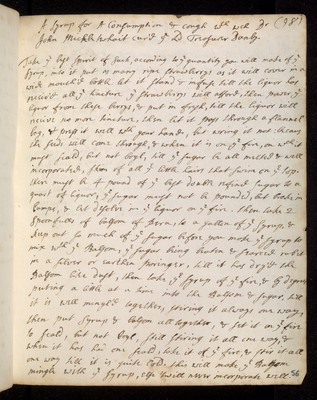 A Syrup for A Consumption & cough wth wch Dr (28)
John Micklethwait cur'd ye Ld Treasurer Danby.
Take ye best Spirit of Sack, according to ye quantity you will make of ye
Syrup, into it put as many ripe Strawberys as it will cover in a
wide mouth'd bottle, let ym stand & infuse till the liquor has
receiv'd all ye tincture ye Strawberys will afford, then power ye
liquor from these berys, & put in fresh, till the liquor will
recive no more tincture, then let it pass through a flannell
bag, & press it well wth your hands, but wring it not because
the seeds will come through, & when it is on ye fire, on wch it
must scald, but not boyl, till ye sugar be all melted & well
incorporated, skim of all ye little hairs that swim on ye top.
ther must be 4 pound of ye best double refined sugar to a
quart of liquor, ye sugar must not be pounded, but broke in
lumps, & let desolve in ye liquor on ye fire. then take 2
spoonfulls of balsom of to a gallon of ye Syrup, &
keep out so much of ye sugar before you make ye Syrup to
mix wth ye Balsom, ye sugar being broken & searced mix it
in a silver or earthen poringer, till it has dry'd the
Balsom like dust, then take ye Syrup of ye fire, & by degrees
puting a little at a time into the Balsom & sugar, till
it is well mingl'd together, stiring it always one way,
then put Syrup & balsom all together, & set it on ye fire
to scald, but not boyl, still stiring it all one way, &
when it has had one scald, take it of ye fire, & stir it all
one way till it is quite cold. this will make ye Balsom
mingle with ye Syrup, else twill never incorporate well